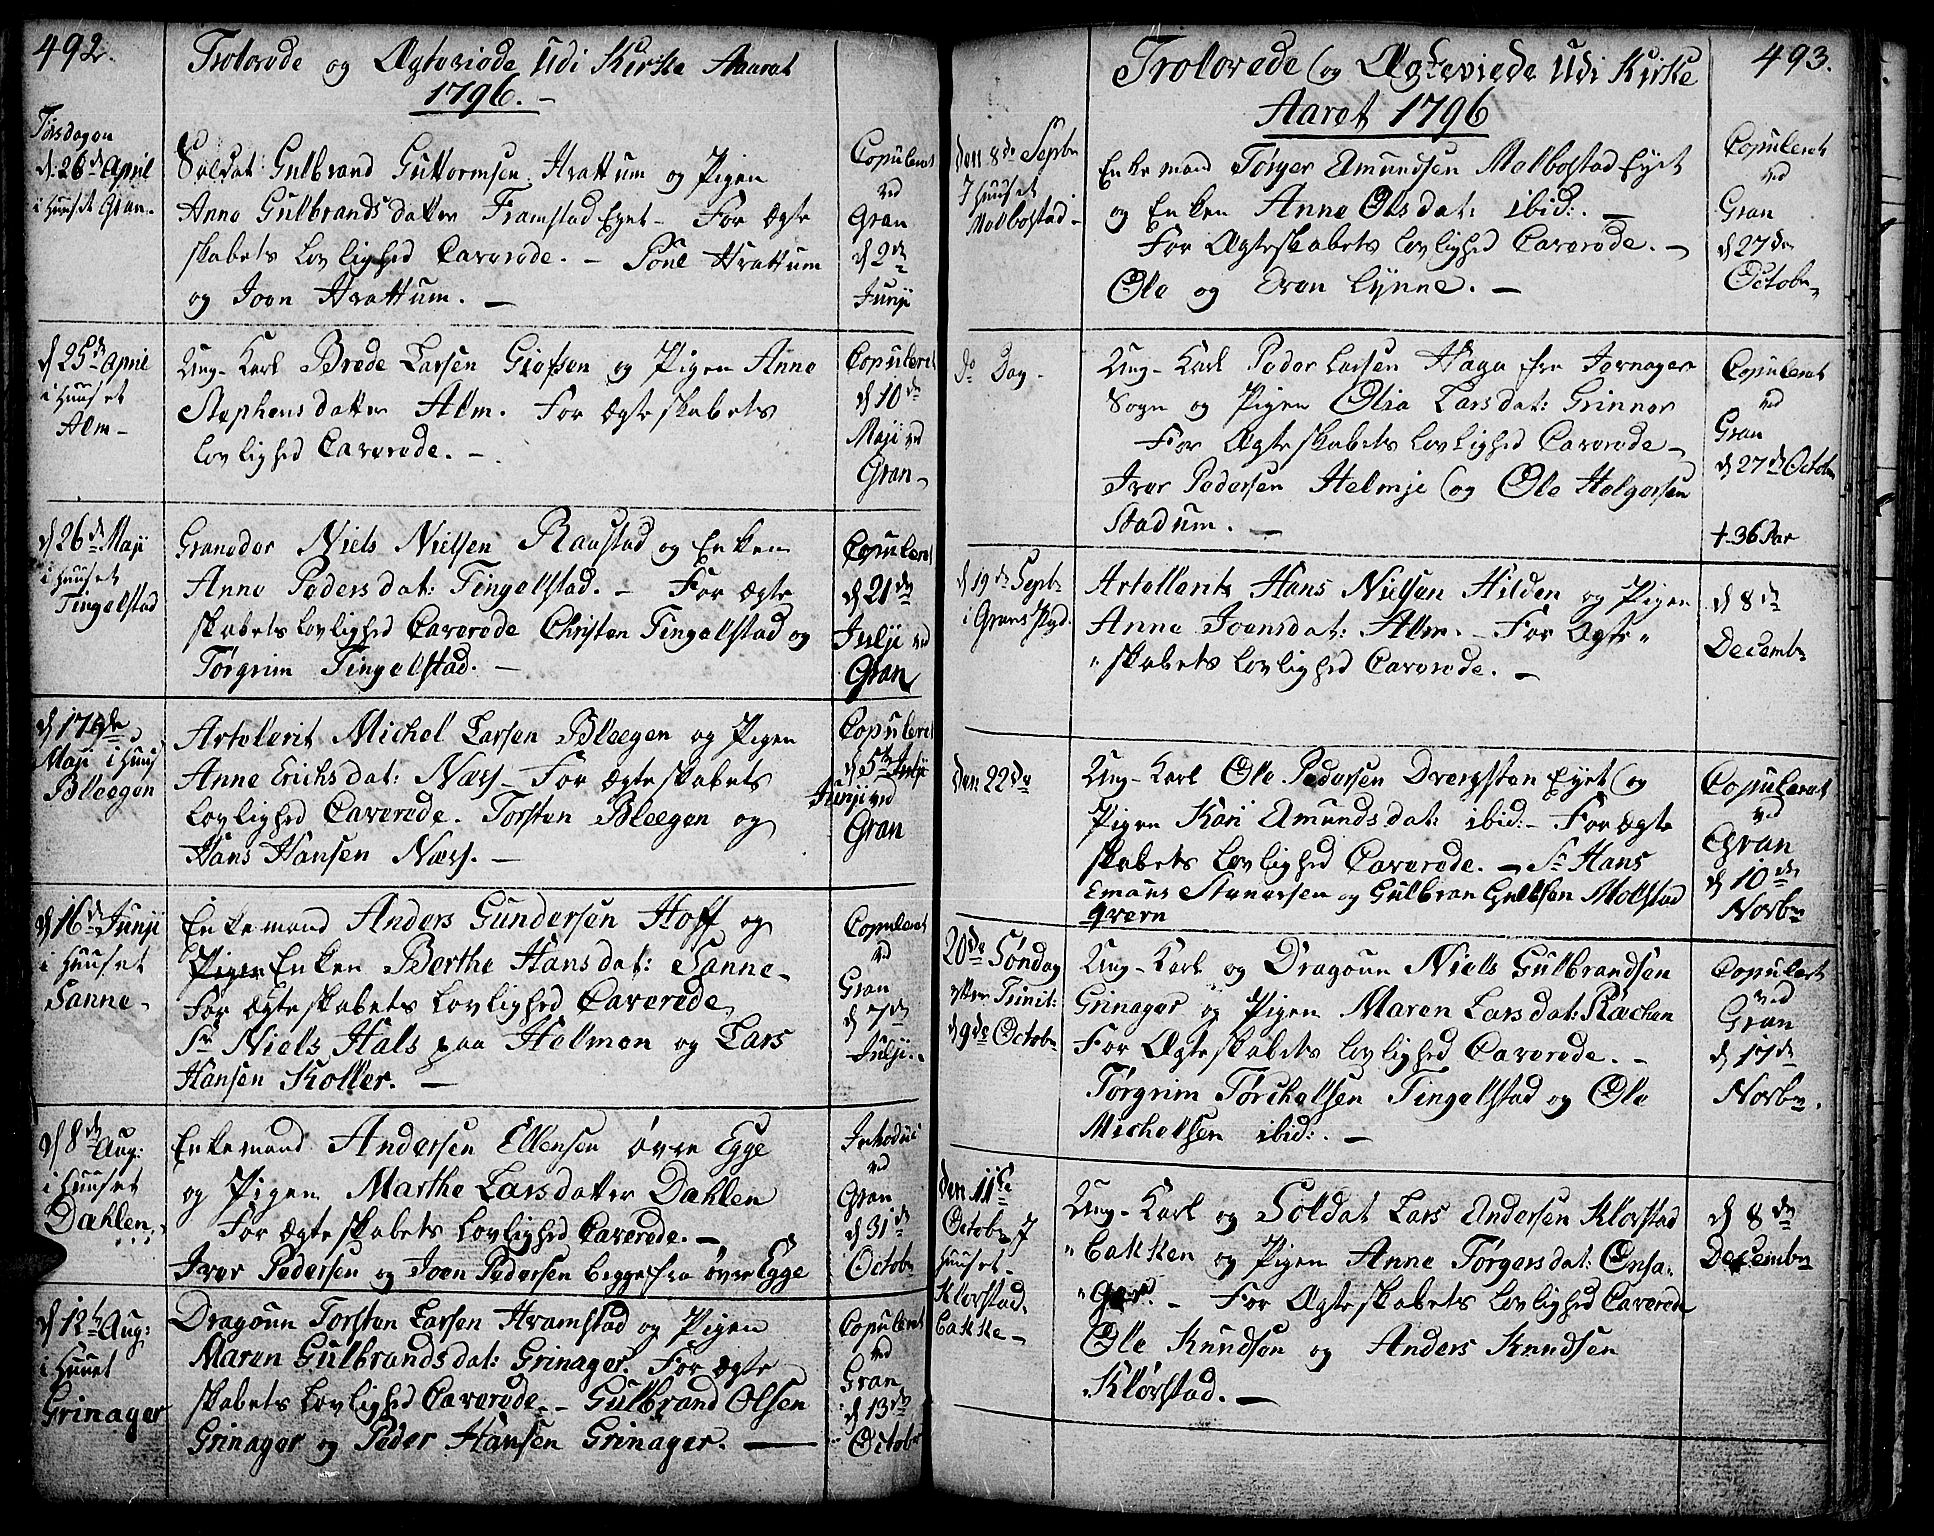 492.
Trolovede og Ægteviede Udi Kirke Aaret
1796. -
Tirsdagen
d. 26de April
i Huuset Gran.
Soldat: Gulbrand Guttormsen Hvattum og Pigen
Anne Gulbrandsdatter Framstad Eyet - For Ægte
skabets Lovlighed Caverede. - Povel Hvattum
og Joen Hvattum. -
Copuleret
ved
Gran
d 2de
Junji
d 25de April
i Huuset
Alm -
Ung-Karl Brede Larsen Giefsen og Pigen Anne
Stephensdatter Alm. For Ægteskabets
Lovlighed Caverede. -
Copuleret
d 10de
Maji ved
Gran -
d 26de Maji
i Huuset
Tingelstad
Granader Niels Nielsen Raustad og Enken
Anne Pedersdat: Tingelstad. - For Ægte
skabets Lovlighed Caverede Christen Tingelstad og
Tørgrim Tingelstad. -
Copuleret
d 21de
Julji ved
Gran
d 17de
Maji i Huus
Bleegen
Artolerit Michel Larsen Bleegen og Pigen
Anne Erichsdat: Næss - For Ægteskabets
Lovlighed Caverede. Torsten Bleegen og
Hans Hansen Næss. -
Copuleret
d 5te Julji
Junji ved
Gran
d 16de Junji
i Huuset
Sanne -
Enkemand Anders Gundersen Hoff og
Pigen Enken Berthe Hansdat: Sanne -
For Ægteskabets Lovlighed Caverede
Sr Niels Hals paa Helmen og Lars
Hansen Koller. -
Copuleret
ved
Gran
d 7de
Julji.
d 8de Aug:
i Huuset
Dæhlen
Enkemand Andersen Ellensen øvre Egge
og Pigen Marthe Larsdatter Dæhlen
For Ægteskabets Lovlighed Caverede. -
Iver Pedersen og Joen Pedersen begge fra øvre Egge
Introduc
ved
Gran
d 31te
Octobr
d 12te Aug:
i Huuet
Grinager
Dragoun Torsten Larsen Hvamstad og Pigen
Maren Gulbrandsdat: Grinager. For Ægte
skabets Lovlighed Caverede. - Gulbrand Olsen
Grinager og Peder Hansen Grinager. -
Copuleret
ved
Gran
d 13de
Octobr
493.
Trolovede og Ægteviede Udi Kirke
Aaret 1796
den 8de Septbr
I Huuset
Molbostad -
Enkemand Tørger Amundsen Molbostad Eyet
og Enken Anne Olsdat: ibid: -
For Ægteskabets Lovlighed Caverede. -
Ole og Even Lynne. -
Copuleret
ved
Gran
d 27de
Octobr
do Dag -
Ung-Karl Peder Larsen Haga fra Jevnager
Sogn og Pigen Olia Larsdat: Grinner
For Ægteskabets Lovlighed Caverede -
Iver Pedersen Helmje og Ole Holgersen
Stadum. -
Copuleret
ved
Gran
d 27de Octobr
+ 36 Par
d 19de Septbr
i Grans Skyd.
Artollerist Hans Nielsen Hilden og Pigen
Anne Joensdat: Alm. - For Ægte"
"skabets Lovlighed Caverede. -
d 8de
Decembr
den 22de
Ung-Karl Ole Pedersen Dvergsten Eyet og
Pigen Kari Amundsdat: ibid: - For Ægte
skabets Lovlighed Caverede. - Sr Hans
Emaus Stenersen og Gulbran Gulbsen Molstad
qvern
Copuleret
ved
Gran
d 10de
Novbr
20de Søndag
efter Trinit:
d 9de Octobr
Ung-Karl og Dragoun Niels Gulbrandsen
Grinager og Pigen Maren Larsdat: Rækken
For Ægteskabets Lovlighed Caverede. -
Tørgrim Tørchelsen Tingelstad og Ole
Michelsen ibid: -
Copuleret
ved
Gran
d 17de
Novbr.
den 11te
Octobr I
Huuset
Klorstad
bakke -
Ung-Karl og Soldat Lars Andersen Klorstad
"bakken og Pigen Anne Tørgersdat: Onsa-
"ger. - For Ægteskabets Lovlighed Caverede
Ole Knudsen og Anders Knudsen
Klørstad. -
d 8de
Decembr